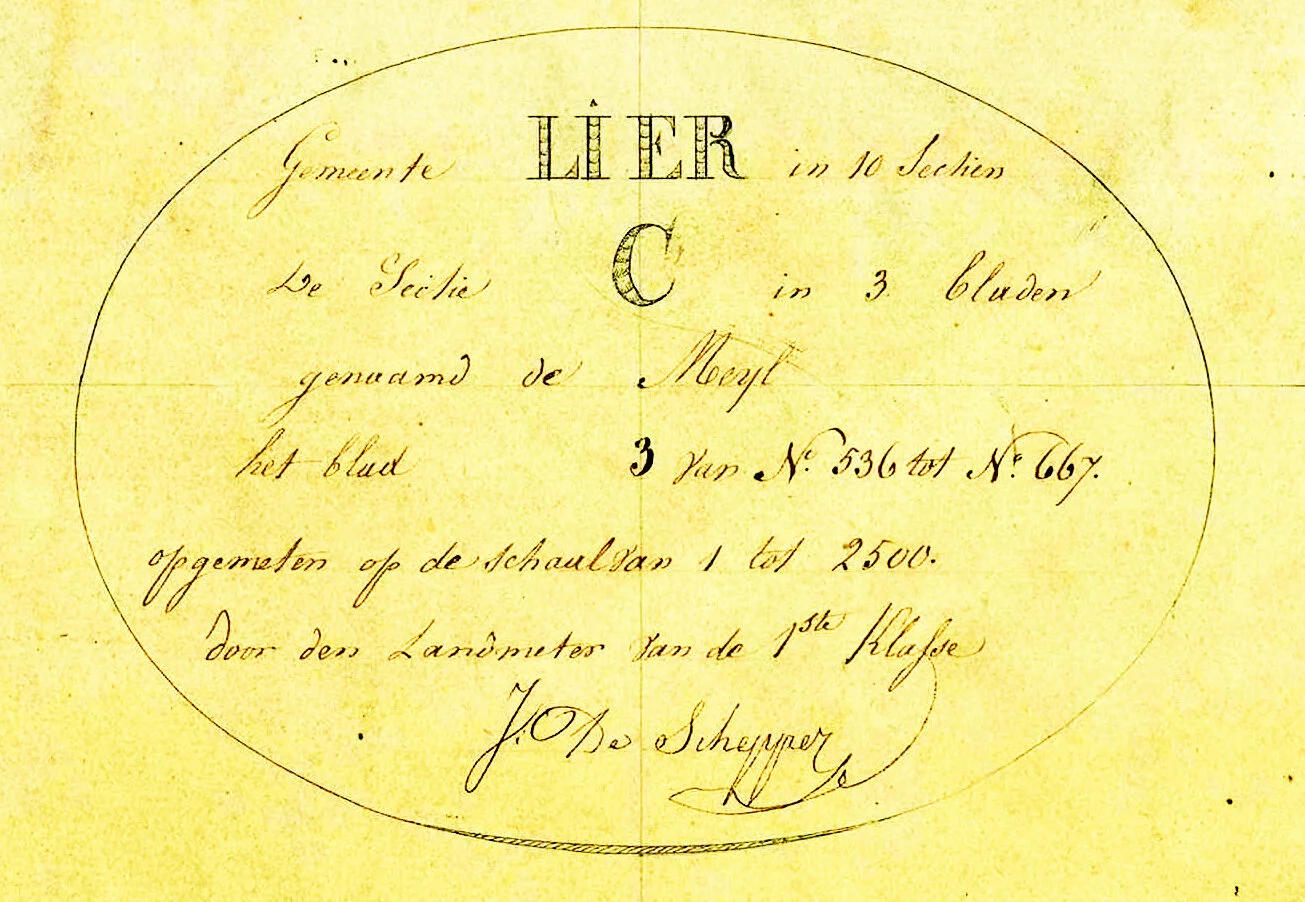 Gemeente LIER in 10 Sectien
De Sectie C in 3 bladen
genaamd de Meyl
het blad 3 van N.º 536 tot N.º 667.
opgemeten op de schaal van 1 tot 2500.
door den Landmeter van de 1ste Klasse
J. De Schepper